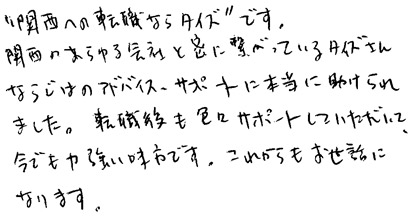 "関西への転職ならタイズ"です。
関西のあらゆる会社と密に繋がっているタイズさん
ならではのアドバイス、サポートに本当に助けられ
ました。転職後も色々サポートしていただいて、
今でも力強い味方です。これからもお世話に
なります。